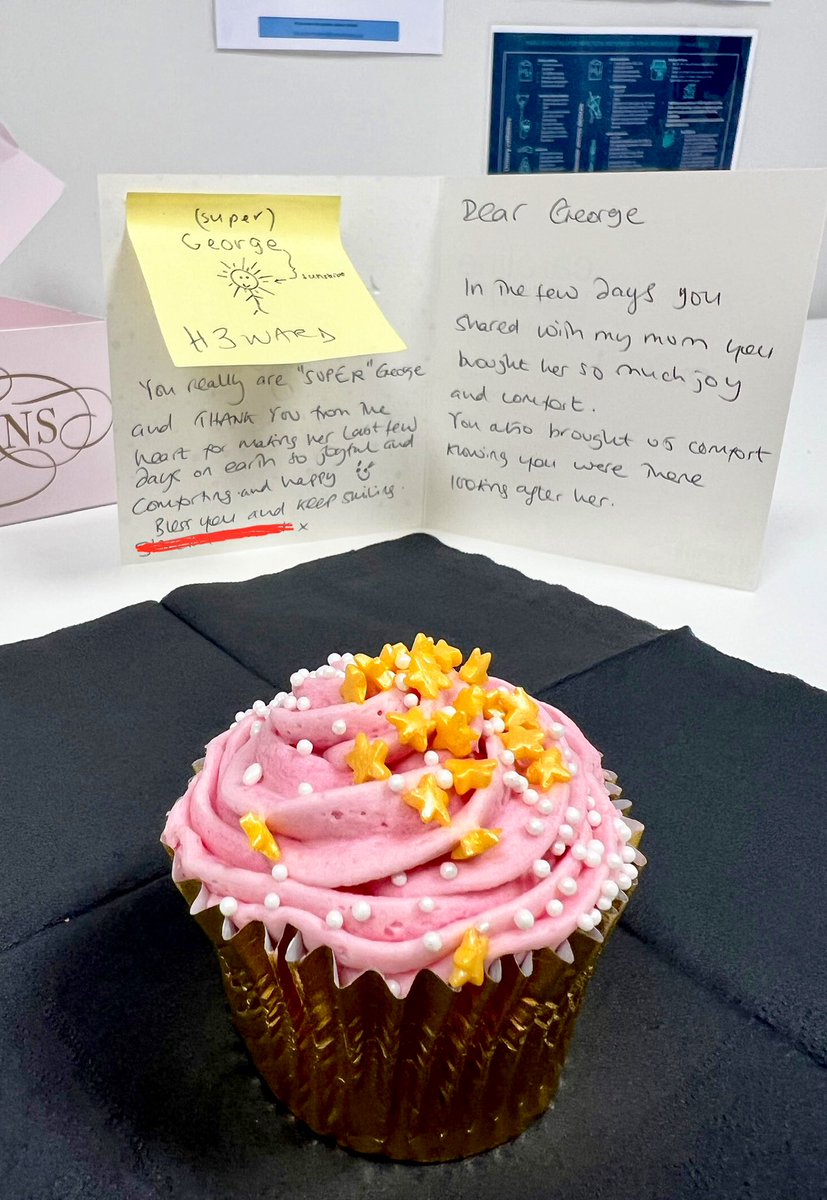 (super)
George
sunshine
H3 WARD
You really are "SUPER" George
and THANK YOU from the
heart for making her last few
days on earth so joyful and
comforting and happy
Bless you and keep smiling.
x
Dear George
In the few days you
shared with my mum you
brought her so much joy
and comfort.
You also brought us comfort
knowing you were there
looking after her.
NS